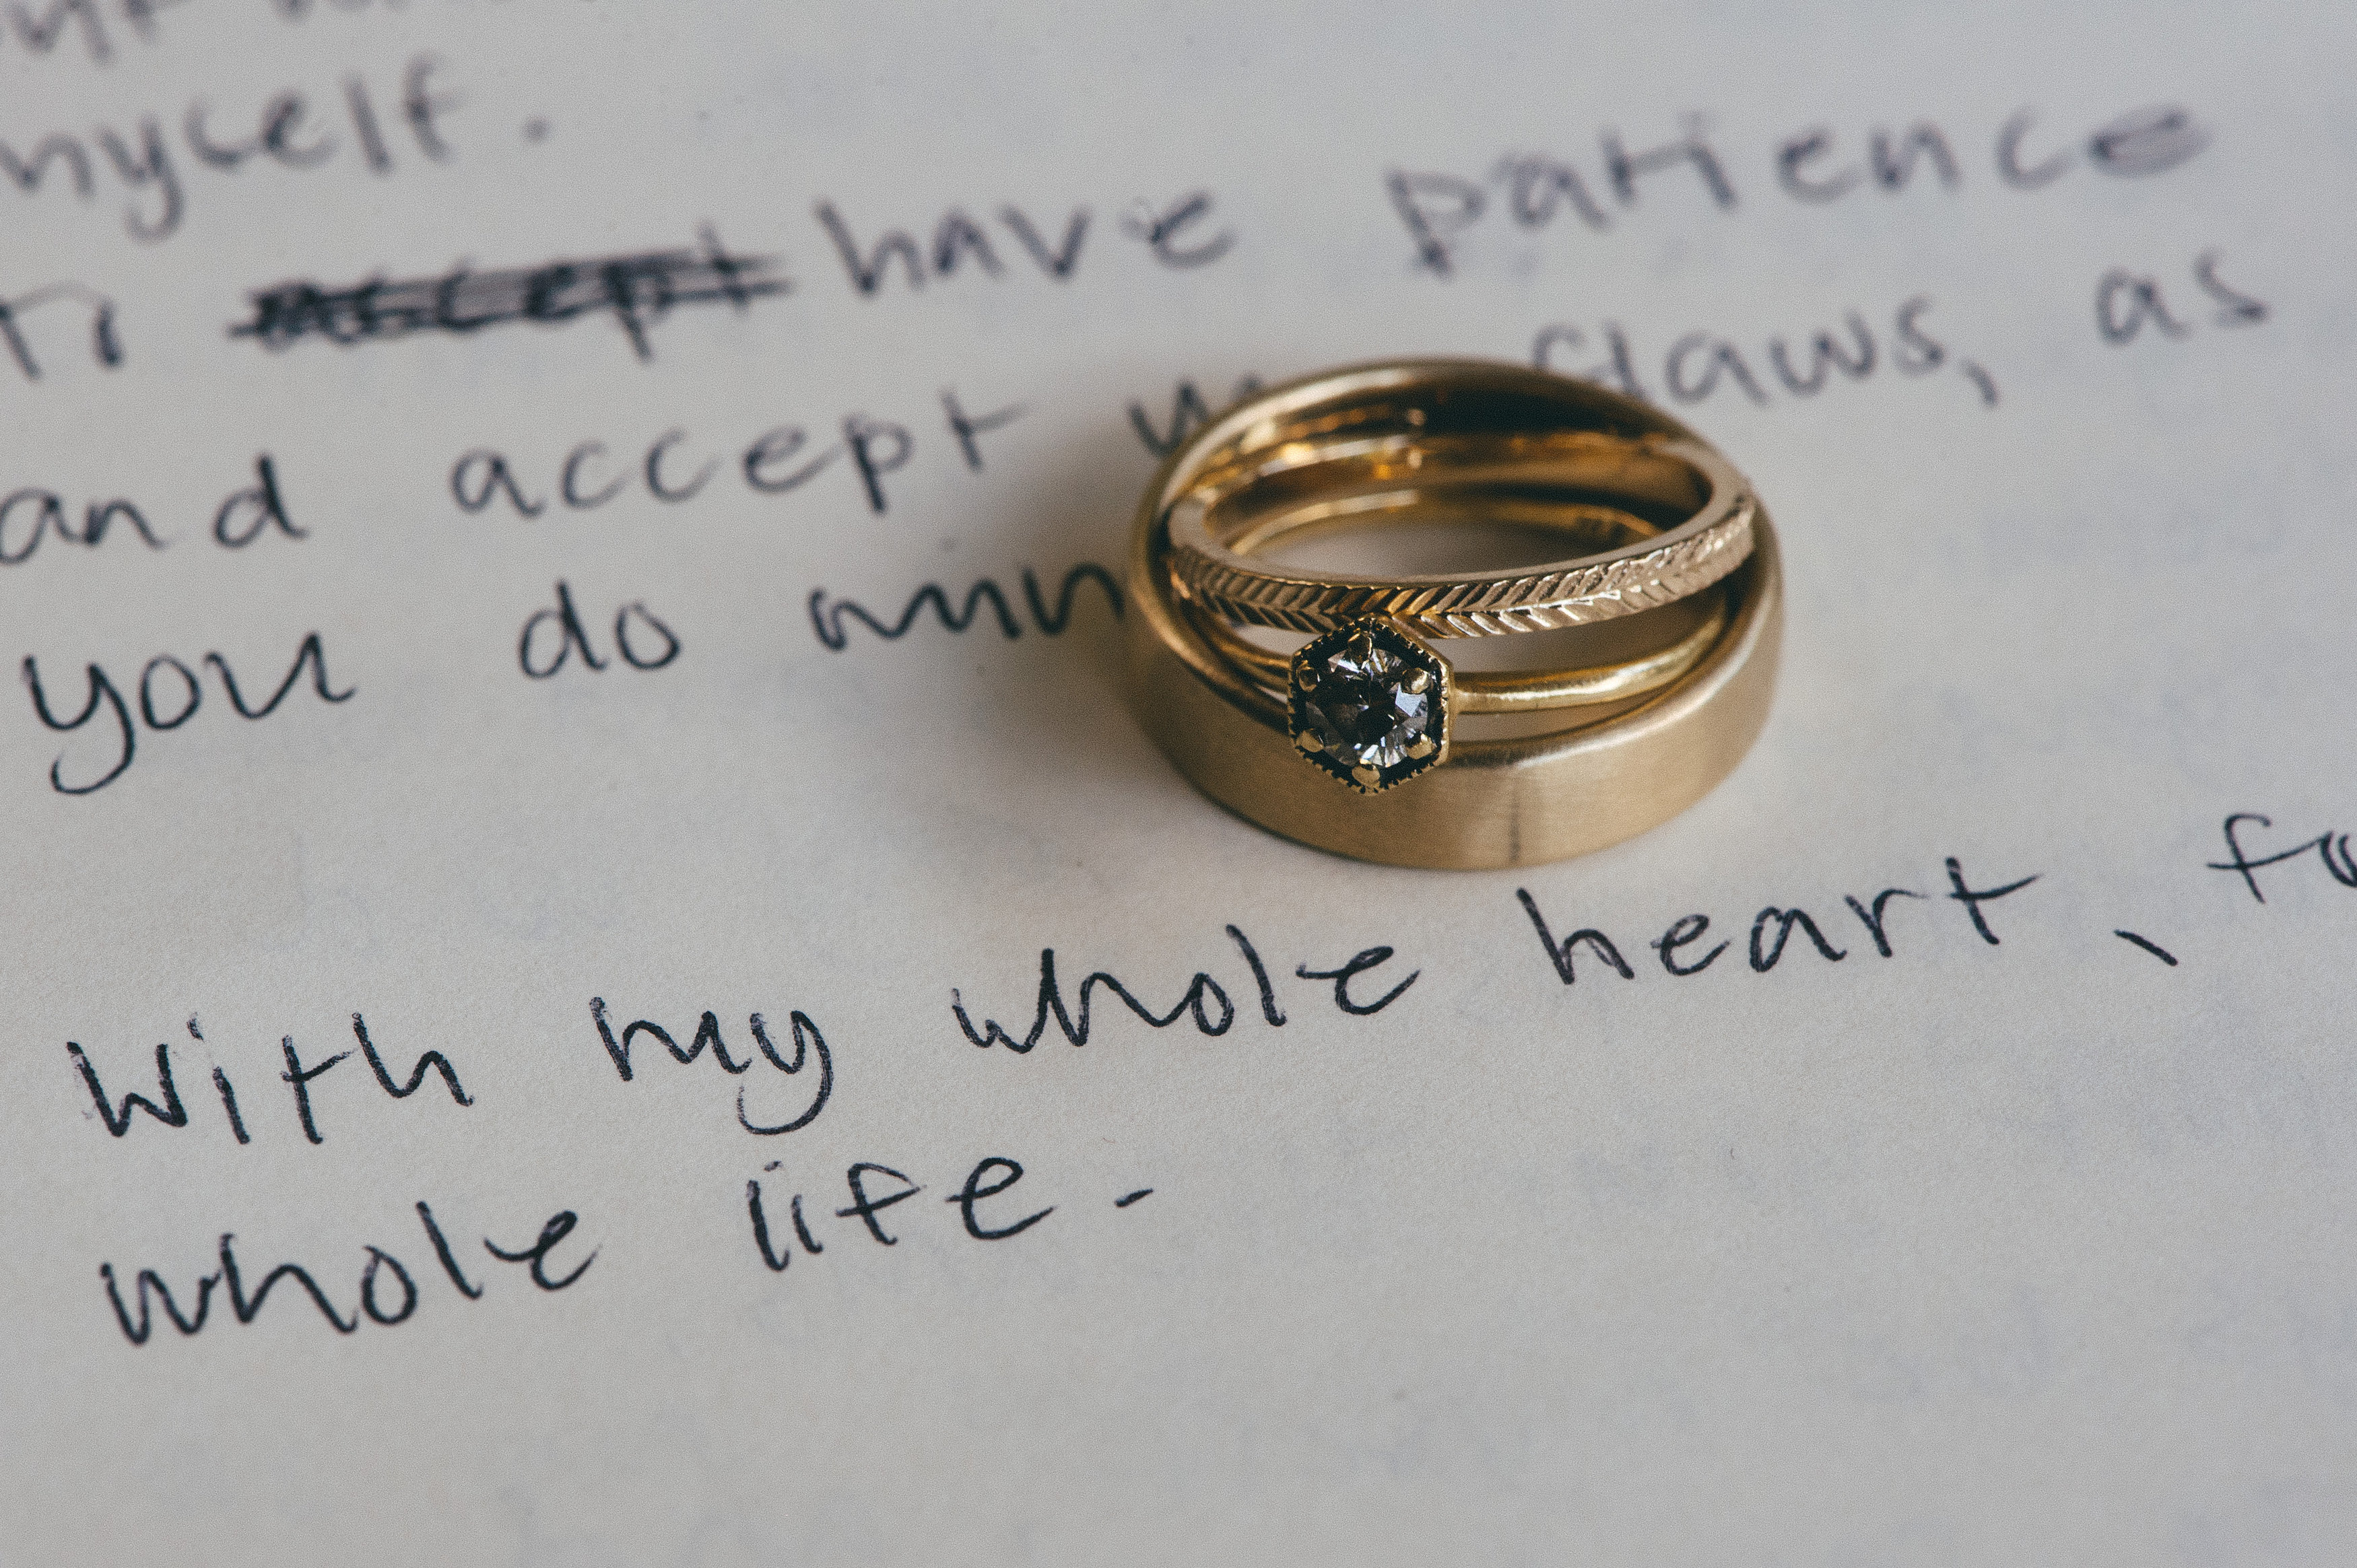 mycelf.
accept have patience
and accept flaws, as
you do
With my whole heart,
whole life.